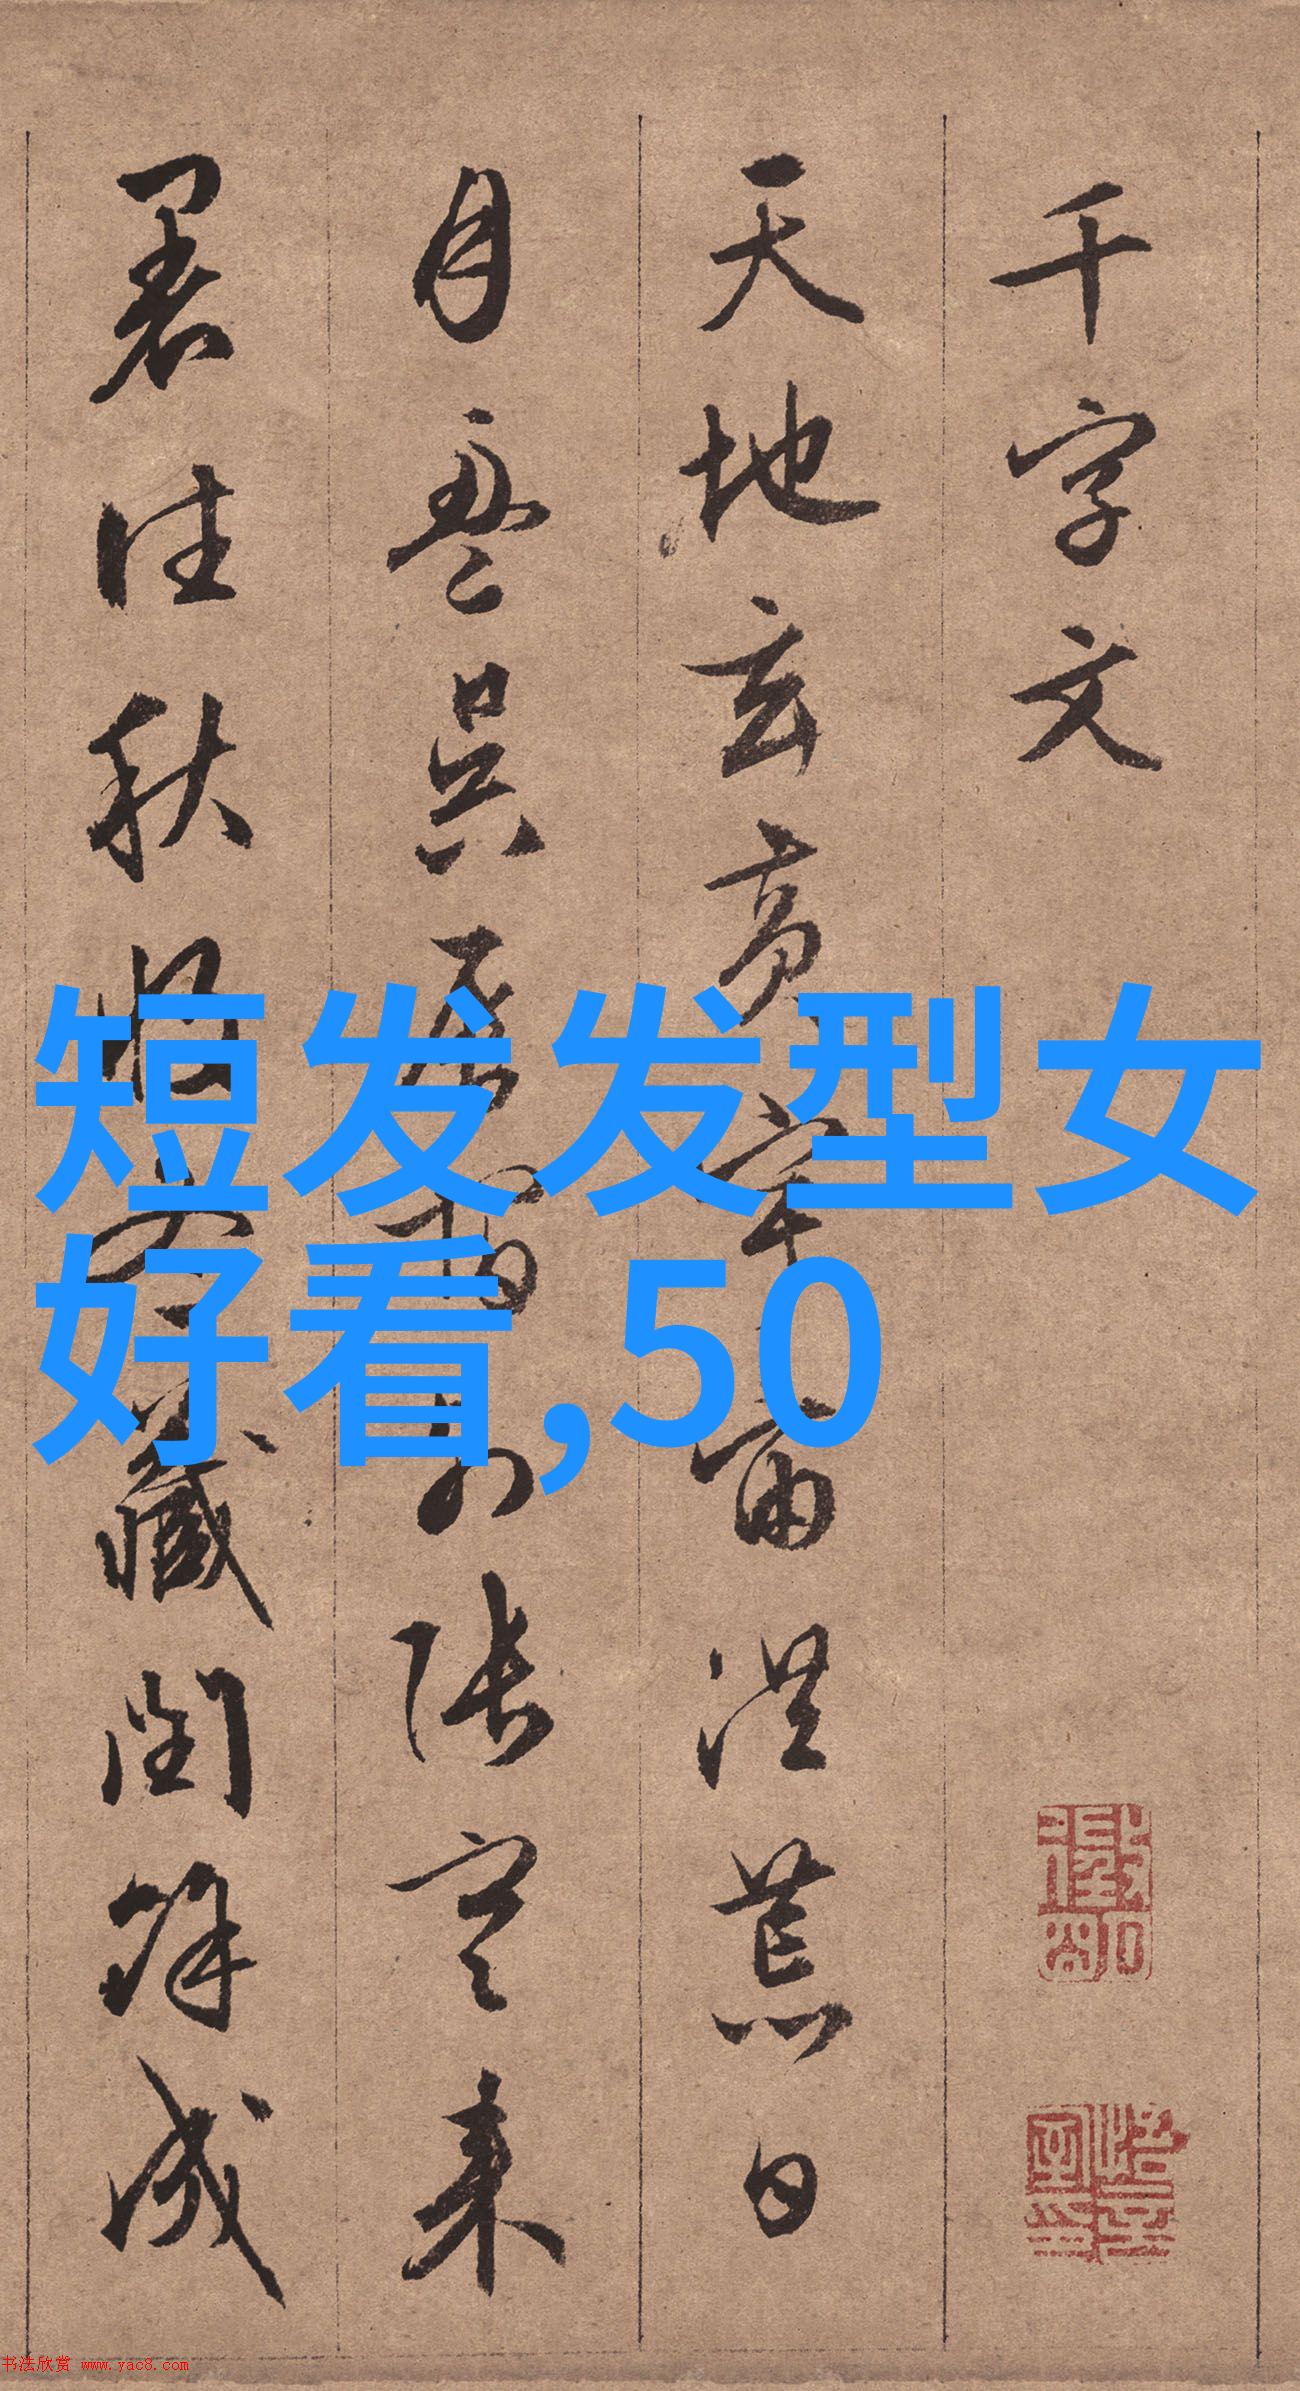 千字文
天地玄黄宇宙洪荒日
月盈昃辰宿列张寒来
暑往秋收冬藏闰余成
短发发型女
好看,50
书法欣赏 www.yac8.com